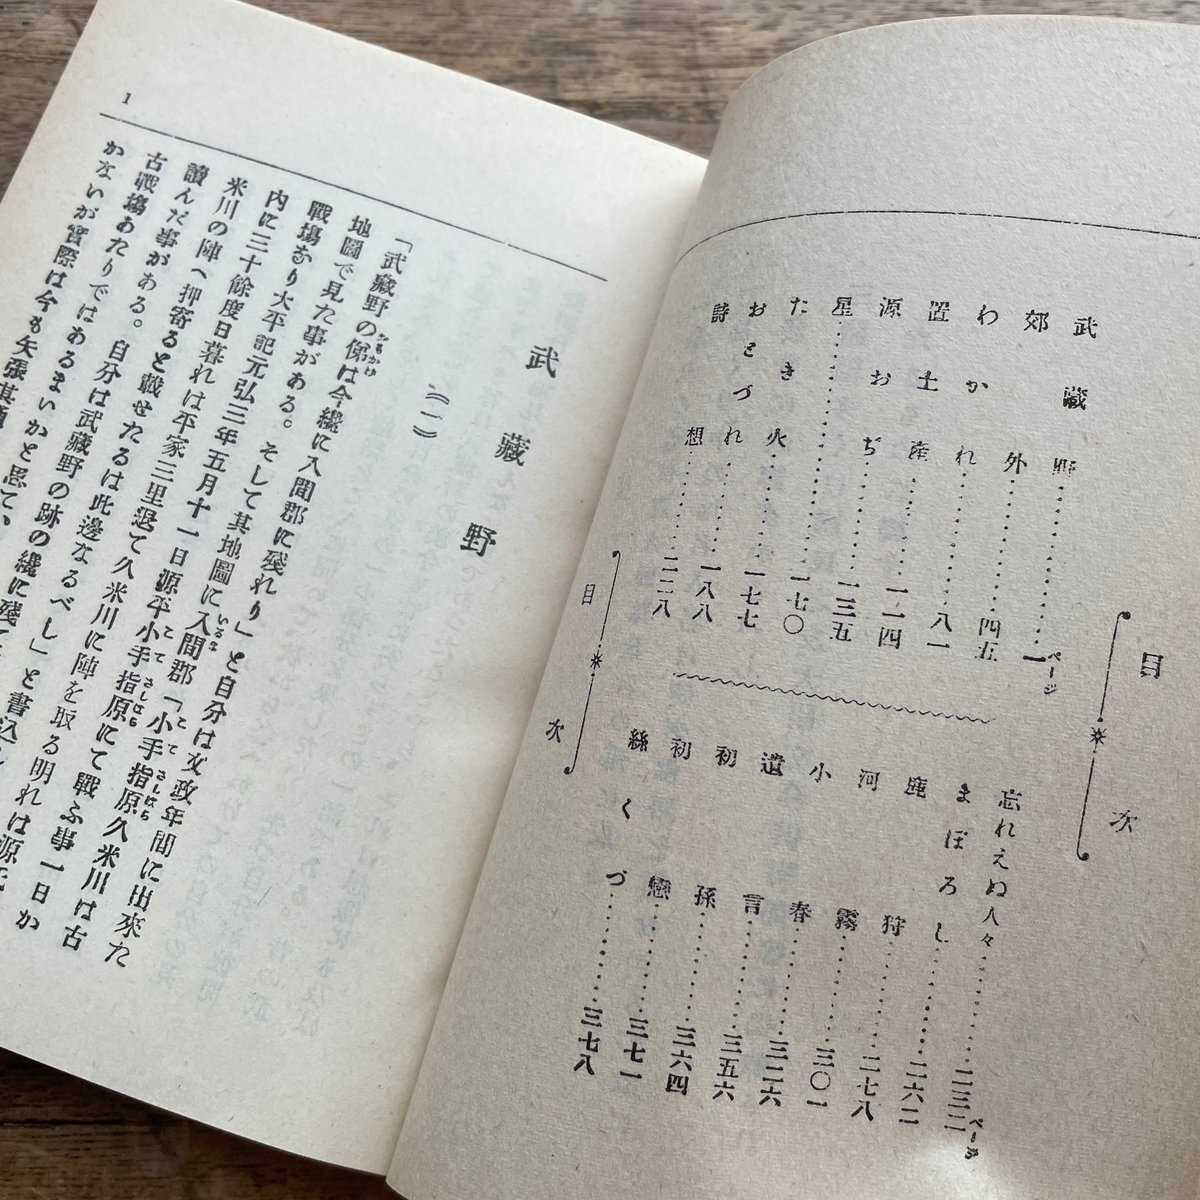 目次
武藏野……一ページ
郊外……四五
わかれ……八一
置土産……一一四
源おぢ……一三五
星……一七〇
たき火……一七七
おとづれ……一八八
詩想……二二八
忘れえぬ人々……二三二ページ
まぼろし……二六二
鹿狩……二七八
河霧……三〇一
小春……三二六
遺言……三五六
初孫……三六四
初戀……三七一
絲くづ……三七八
目次
1
武藏野
(一)
「武藏野の俤は今纔に入間郡に殘れり」と自分は文政年間に出來た
地圖で見た事がある。そして其地圖に入間郡「小手指原久米川は古
戰塲なり太平記元弘三年五月十一日源平小手指原にて戰ふ事一日か
内に三十餘度日暮れは平家三里退て久米川に陣を取る明れは源氏
米川の陣へ押寄ると載せたるは此邊なるべし」と書込
讀んだ事がある。自分は武藏野の跡の纔に殘て
古戰塲あたりではあるまいかと思て、
かないが實際は今も矢張其通